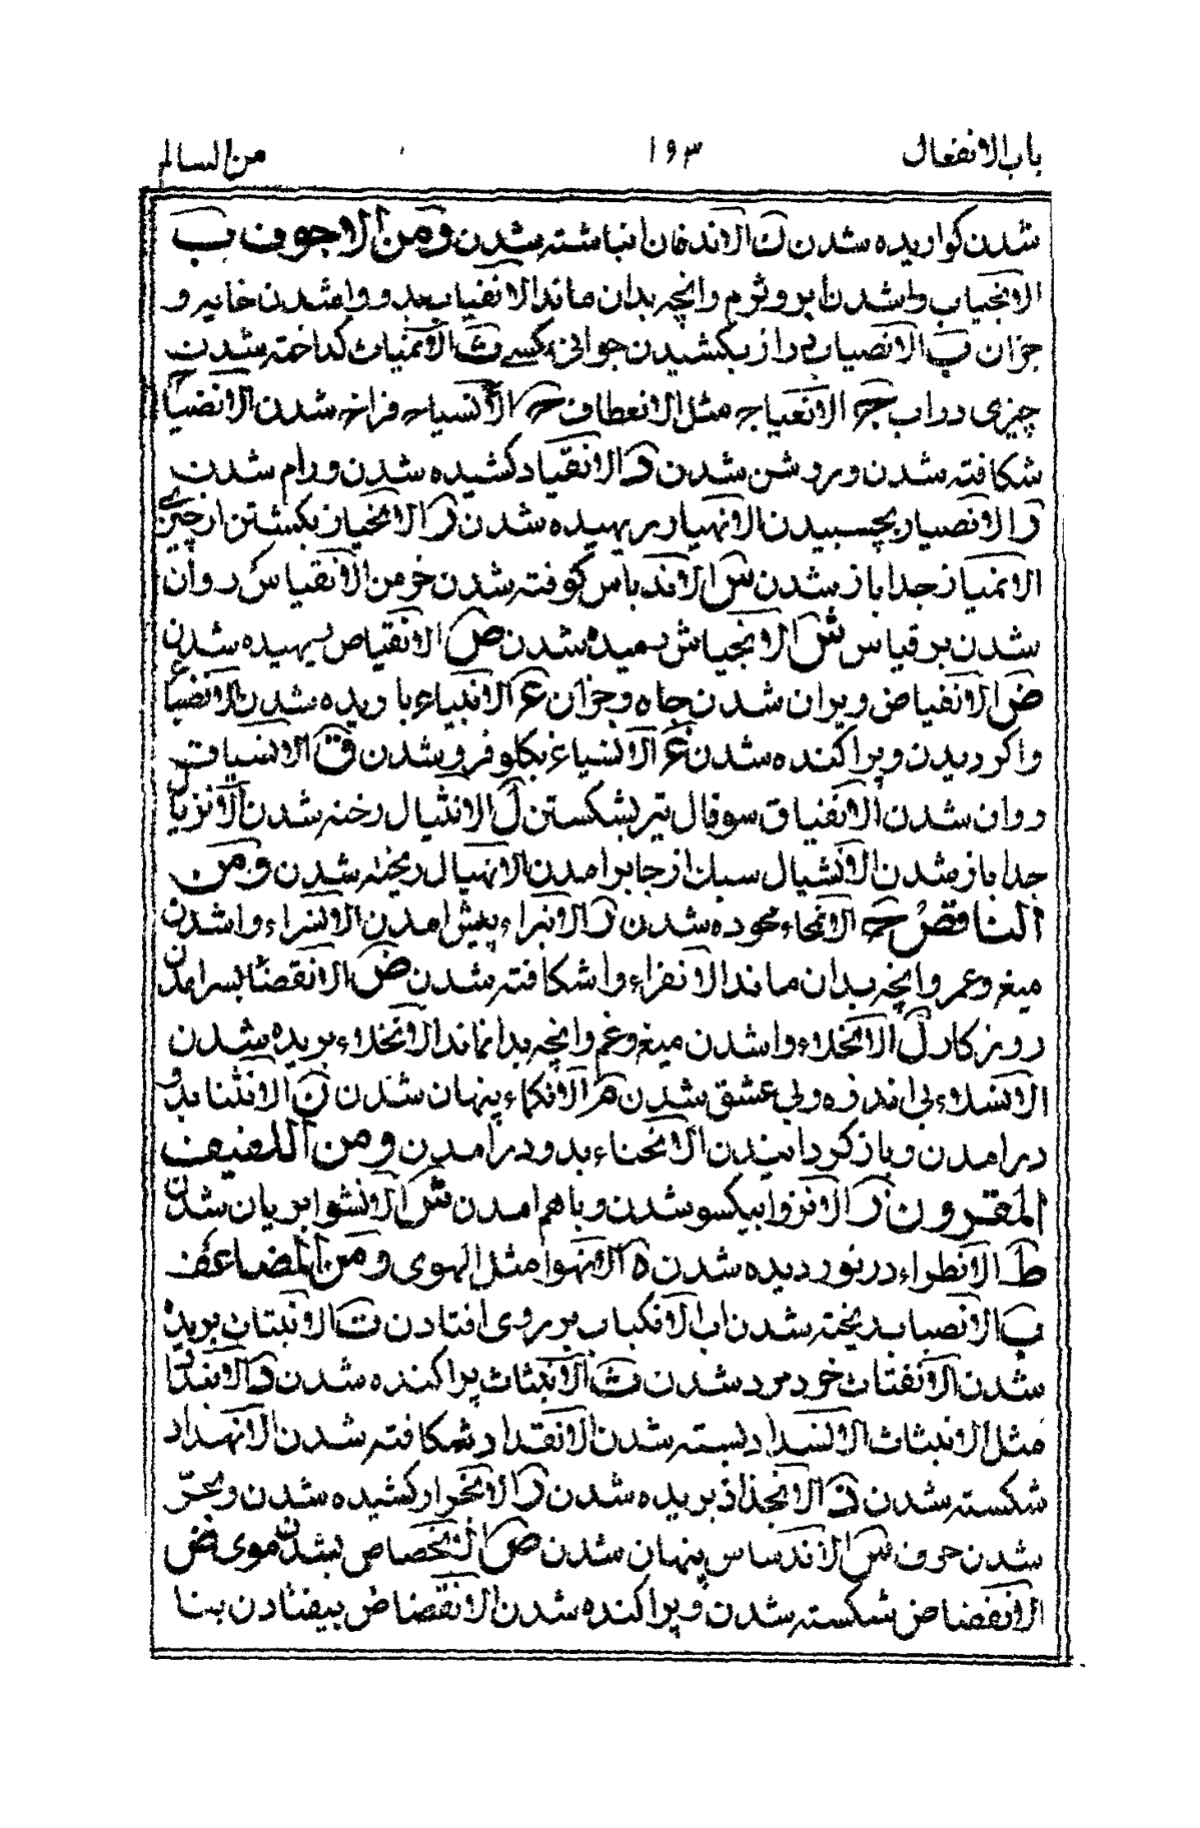 باب الانفعال ۱۹۳ من السالم
شدن کواریده شدن ن الاندفان انباشته شدن ومن الاجوف ب
الانجیاب واشدن ابر وثرم وانچه بدان ماند الانغیاب بدو واشدن خایه و
جزان ب الانصیاب از بکشیدن جوانی کسے ث الانمیاث کداخته شدن
چیزی دراب ج الانعیاج مثل الانعطاف ح الانسیاح فراخ شدن الانضیاح
شکافته شدن و شن شدن د الانقیاد کشیده شدن ورام شدن
ر الانصیار بچسبیدن الانهیار بریهیده شدن ز الانحیاز بکشتن ازچیزے
الانمیاز جدا باز شدن س الاندیاس کوفته شدن خرمن الانقیاس روان
شدن برقیاس ش الانجیاش رمیده شدن ص الانقیاص بریهیده شدن
ض الانقیاض ویران شدن چاه وجزان ع الانبیاع باوریده شدن الانضیاع
واکردیدن وپراکنده شدن غ الانسیاغ بکلو فروشدن ق الانسیاق
روان شدن الانفیاق سوفال تیر بشکستن ل الانثیال رخنه شدن الانزیال
جدا باز شدن الانشیال سبک ازجا برامدن الانهیال ریخته شدن ومن
الناقص ح الانمحاء محوده شدن ر الانبراء پیش امدن الانسراء واشدن
میغ وغم وانچه بدان ماند الانفراء واشکافته شدن ض الانقضا بسرامدن
روزکار ل الانجلاء واشدن میغ وغم وانچه بدانماند الانخلاء بریده شدن
الانسلاء بی اندوه وبی عشق شدن م الانکماء پنهان شدن ن الانثنا بدو
درامدن وبازکردانیدن الانحناء بدو درامدن ومن اللفیف
المقرون ز الانزوا بیکسو شدن وباهم امدن ش الانشوا بریان شدن
ط الانطواء درنوردیده شدن ه الانهوا مثل الهوی ومن المضاعف
ب الانصباب ریخته شدن اب الانکباب برروی افتادن ت الانبتات بریده
شدن الانفتات خردمرد شدن ث الانبثاث پراکنده شدن د الانبداد
مثل الانبثاث الانسداد بسته شدن الانقداد شکافته شدن الانهداد
شکسته شدن ذ الانجذاذ بریده شدن ر الانجرار کشیده شدن وبجرّ
شدن حرف س الاندساس پنهان شدن ص الانحصاص بشدن موی ض
الانفضاض شکسته شدن وپراکنده شدن الانقضاض بیفتادن بنا